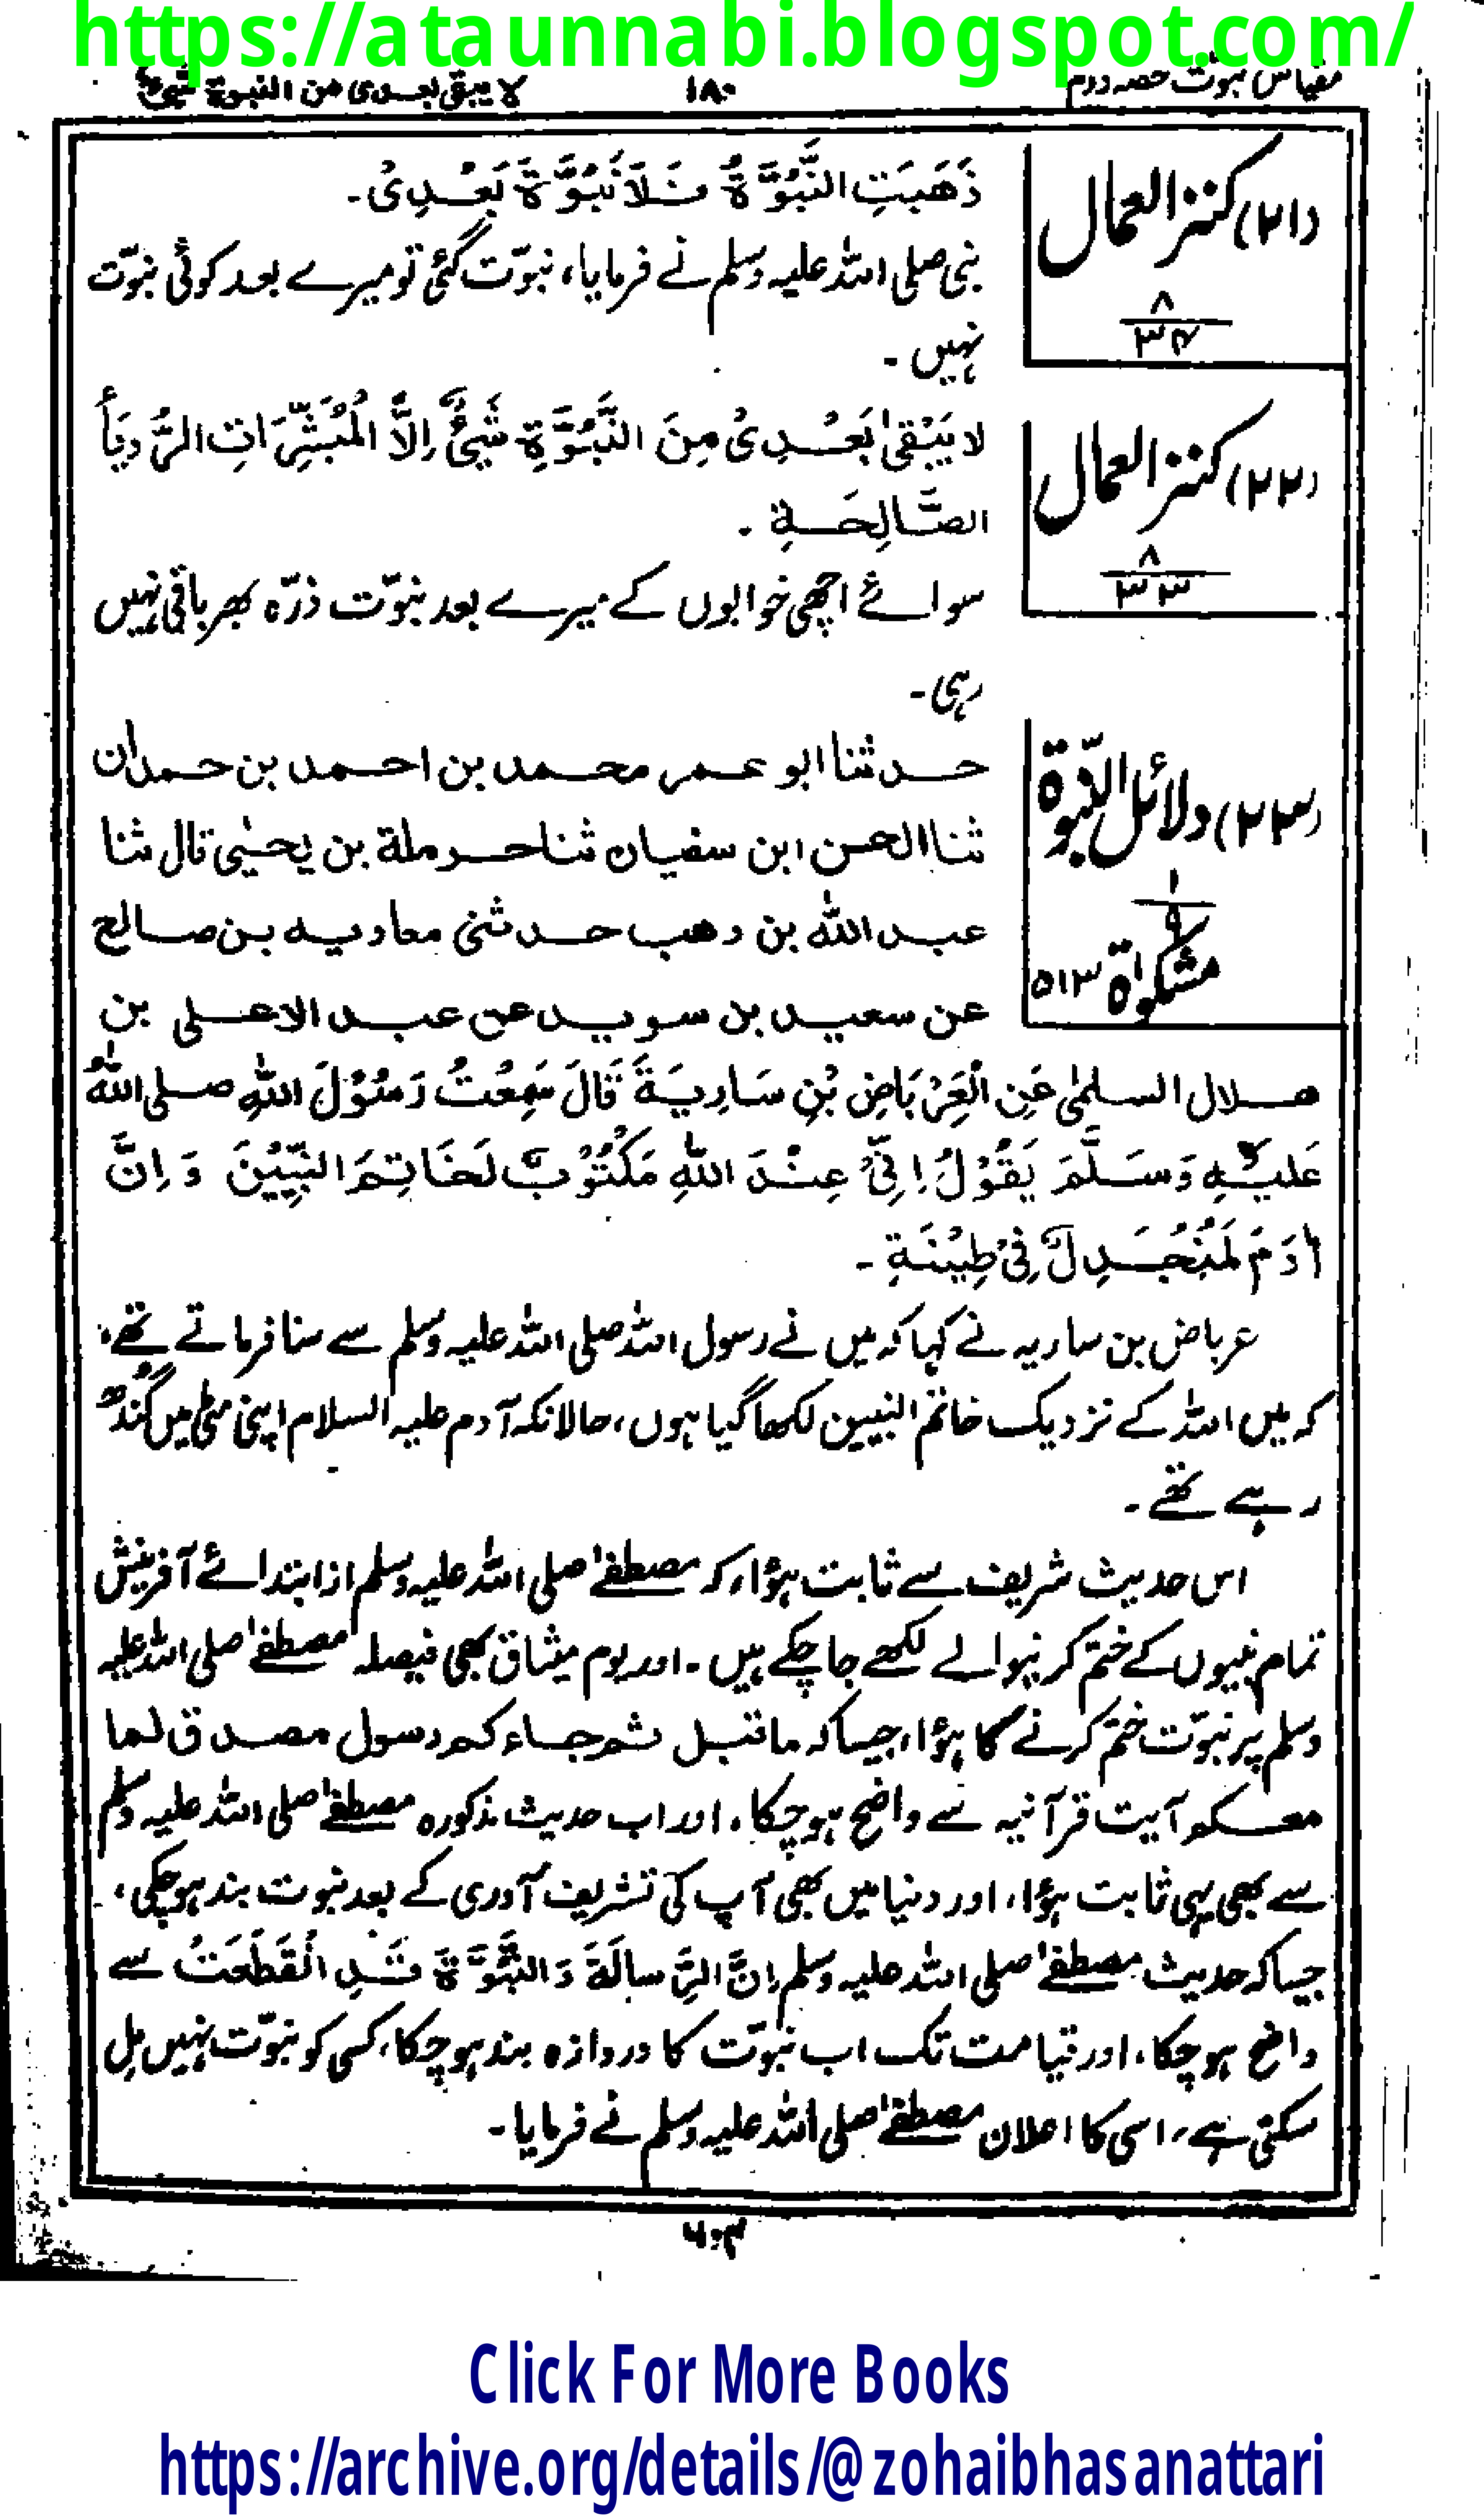 https://ataunnabi.blogspot.com/
مقیاس نبوّت حصہ دوم ۱۸۰ لا یبقی بعدی من النبوة شیئ
(۲۱) کنز العمال
۸
۳۴
ذَهَبَتِ النَّبُوَّةُ فَلَا نَبُوَّةَ بَعْدِیْ۔
نبی صلی اللہ علیہ وسلم نے فرمایا، نبوّت گئی تو میرے بعد کوئی نبوّت
نہیں۔
(۲۲) کنز العمال
۸
۳۳
لا یَبْقیٰ بَعْدِیْ مِنَ النَّبُوَّةِ شَیْئٌ اِلاَّ الْمُبَشِّرَاتِ الرُّویَأُ
الصَّالِحَةِ۔
سوائے اچھی خوابوں کے میرے بعد نبوّت ذرّہ بھر باقی نہیں
رہی۔
(۲۳) دلائل النبوۃ
۱
۹
مشکوٰۃ ۵۱۳
حدثنا ابو عمر محمد بن احمد بن حمدان
ثنا الحسن ابن سفیان ثنا حرملة بن یحیٰی قال ثنا
عبد الله بن وهب حدثنی معاویه بن صالح
عن سعید بن سوید عن عبد الاعلی بن
هلال السلمی عَنِ الْعِرْبَاضِ بْنِ سَارِیَةَ قَالَ سَمِعْتُ رَسُوْلَ اللهِ صلی اللهُ
عَلَیْهِ وَسَلَّمَ یَقُوْلُ اِنِّیْ عِنْدَ اللهِ مَکْتُوْبٌ لَخَاتِمَ النَّبِیِّیْنَ وَاِنَّ
اٰدَمَ لَمُنْجَدِلٌ فِیْ طِیْنَةِ۔
عرباض بن ساریہ نے کہا کہ میں نے رسول اللہ صلی اللہ علیہ وسلم سے سنا فرماتے تھے،
کہ میں اللہ کے نزدیک خاتم النبیین لکھا گیا ہوں، حالانکہ آدم علیہ السلام اپنی مٹی میں گُندھ
رہے تھے۔
اس حدیث شریف سے ثابت ہؤا، کہ مصطفےٰ صلی اللہ علیہ وسلم از ابتدائے آفرینش
تمام نبیوں کے ختم کرنیوالے لکھے جا چکے ہیں۔ اور یوم میثاق بھی فیصلہ مصطفےٰ صلی اللہ علیہ
وسلم پر نبوّت ختم کرنے کا ہؤا، جیسا کہ ماقبل ثم جاء کم رسول مصدق لما
معکم آیت قرآنیہ سے واضح ہو چکا، اور اب حدیث مذکورہ مصطفےٰ صلی اللہ علیہ وسلم
سے بھی یہی ثابت ہؤا، اور دنیا میں بھی آپ کی تشریف آوری کے بعد نبوت بند ہو چکی،
جیسا کہ حدیث مصطفےٰ صلی اللہ علیہ وسلم اِنَّ الرِّسالَةَ وَالنَّبُوَّةَ قَدِ انْقَطَعَتْ سے
واضح ہو چکا، اور قیامت تک اب نبوّت کا دروازہ بند ہو چکا، کسی کو نبوّت نہیں مِل
سکتی ہے، اسی کا اعلان مصطفےٰ صلی اللہ علیہ وسلم نے فرمایا۔
Click For More Books
https://archive.org/details/@zohaibhasanattari